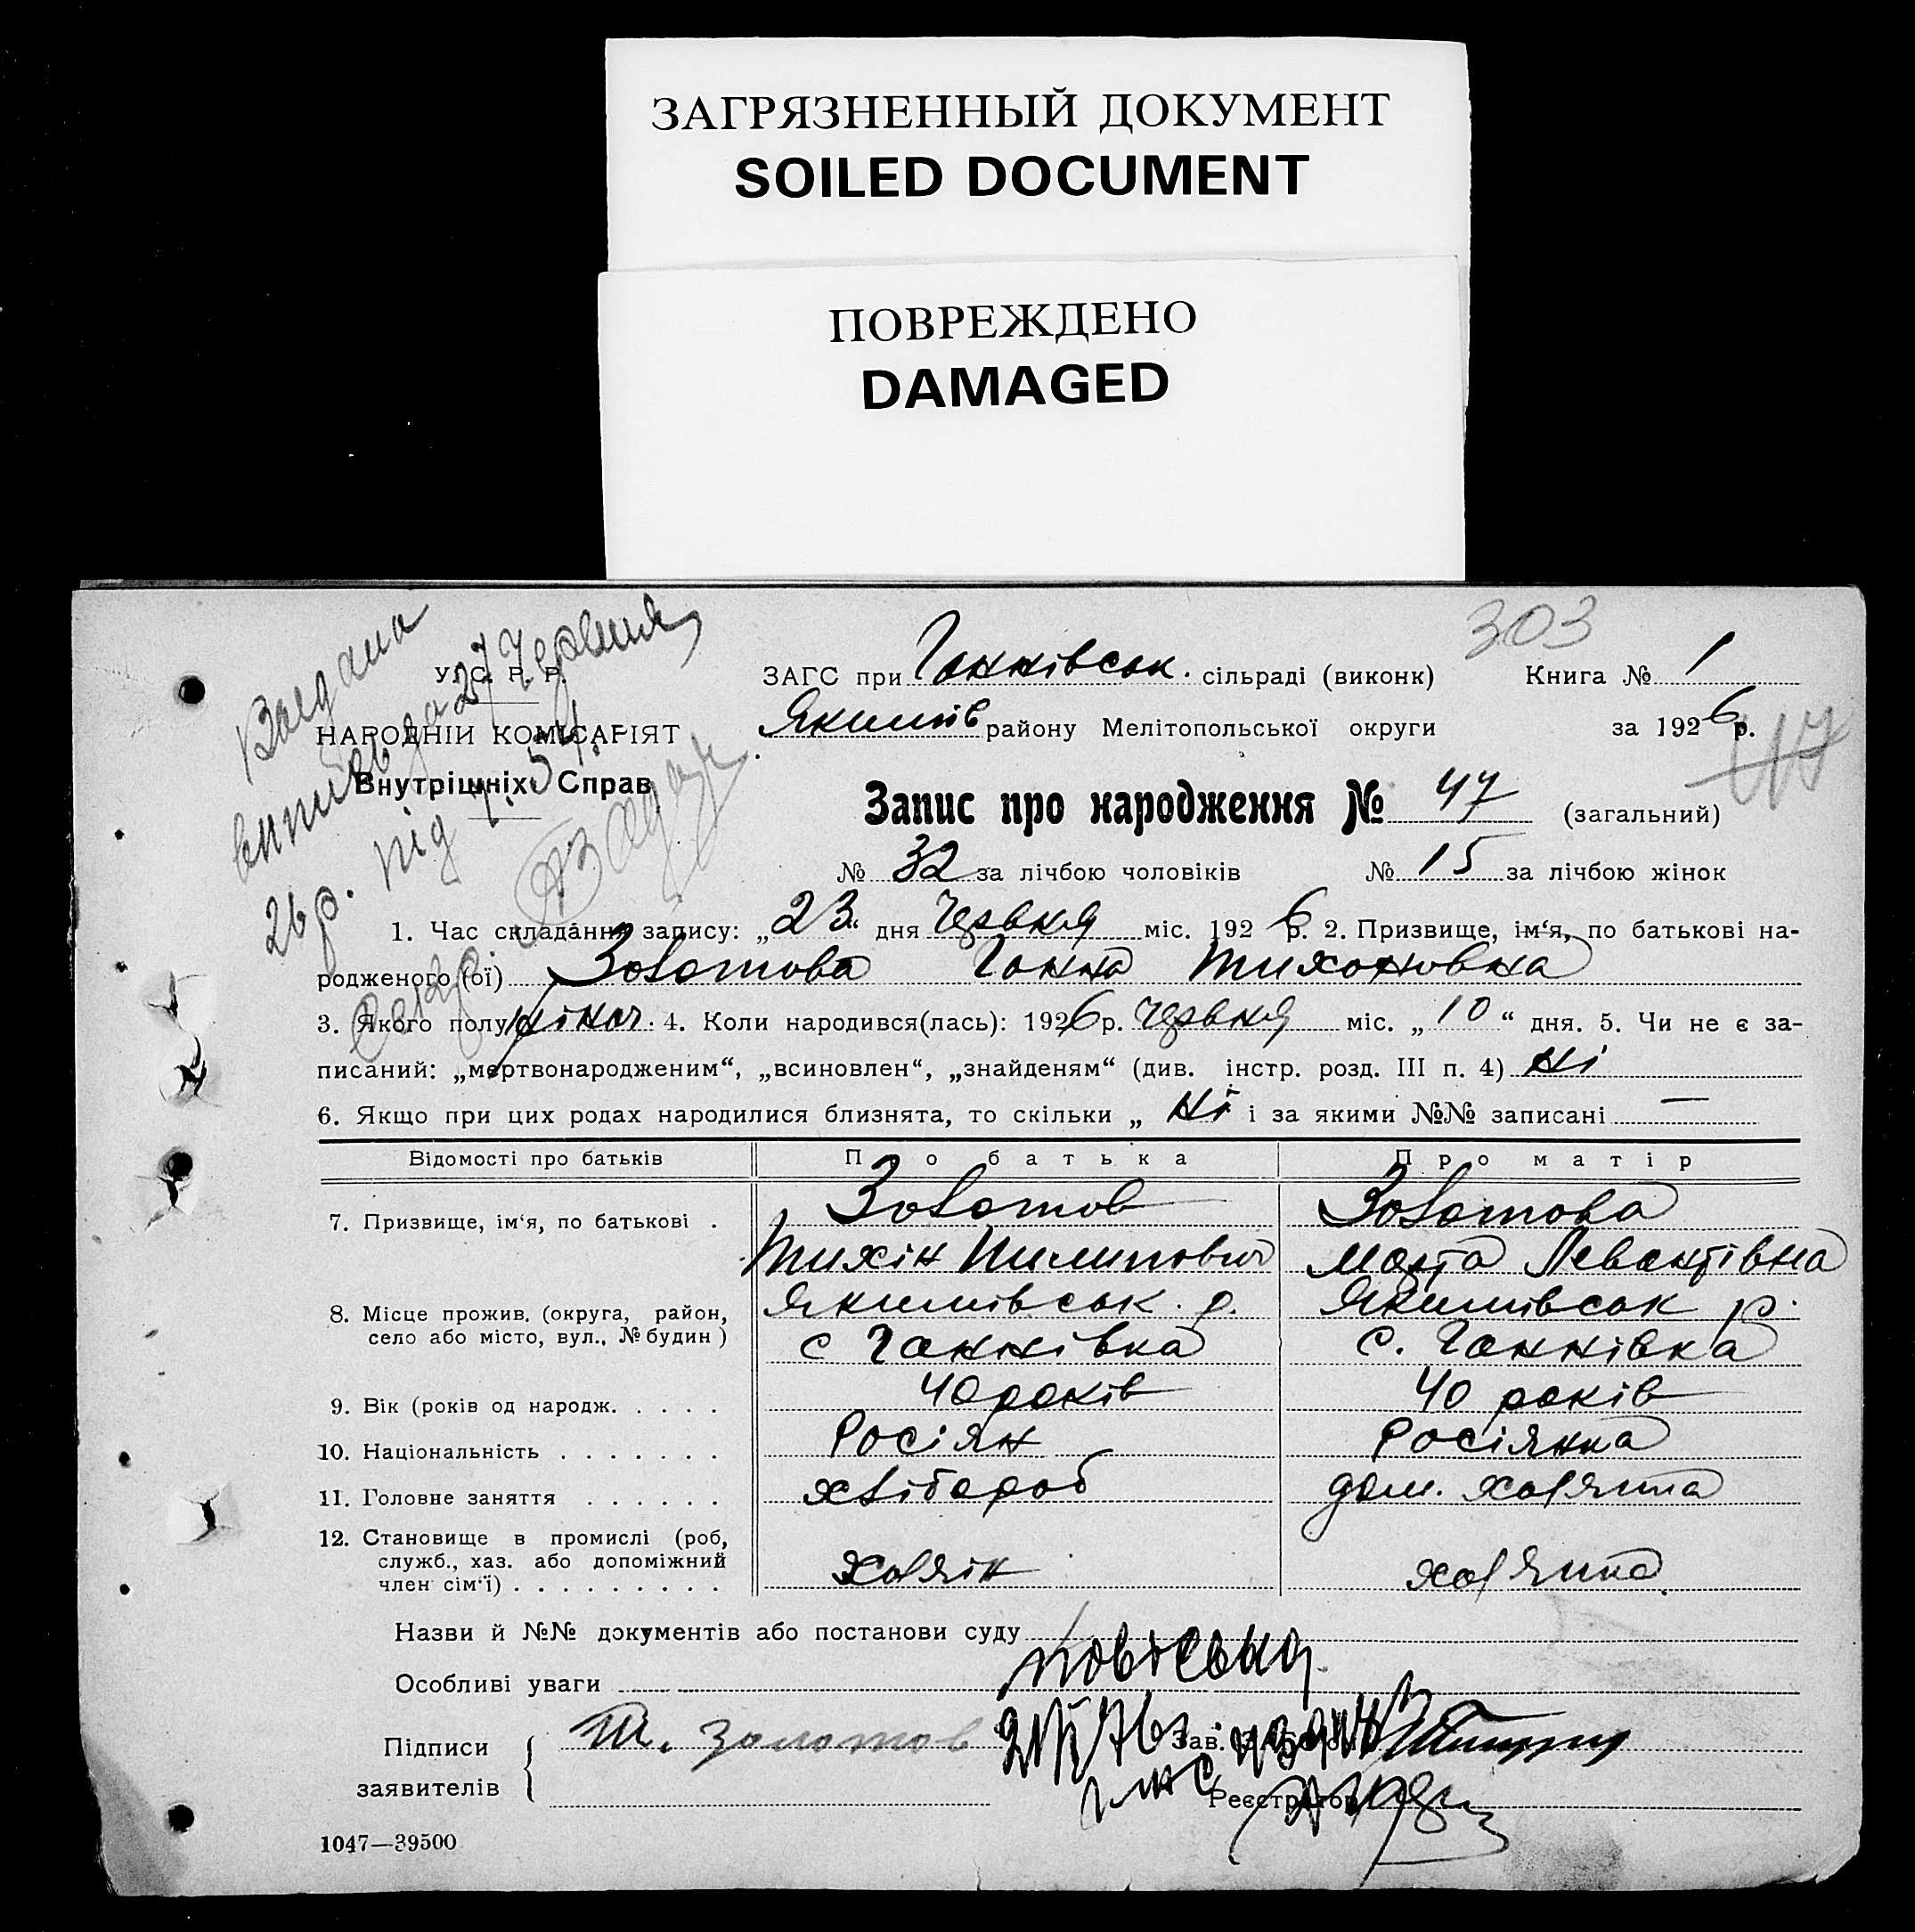 ЗАГРЯЗНЕННЫЙ ДОКУМЕНТ
SOILED DOCUMENT
ПОВРЕЖДЕНО
DAMAGED
303
У. С. Р. Р.
НАРОДНІЙ КОМІСАРІЯТ
Внутрішніх Справ
Видана
витись до 27 Червня
26 р. під
ЗАГС при Ганнівськ. сільраді (виконк) Книга № 1
Якимів району Мелітопольської округи за 1926 р.
47
Запис про народження № 47 (загальний)
№ 32 за лічбою чоловіків № 15 за лічбою жінок
1. Час складання запису: „23“ дня Червня міс. 1926 р. 2. Призвище, ім‘я, по батькові на-
родженого (ої) Золотова Ганна Тихоновна
3. Якого полу жіноч. 4. Коли народився(лась): 1926 р. Червня міс. „10“ дня. 5. Чи не є за-
писаний: „мертвонародженим“, „всиновлен“, „знайденям“ (див. інстр. розд. III п. 4) Ні
6. Якщо при цих родах народилися близнята, то скільки „ Ні і за якими №№ записані —
Відомості про батьків Про батька Про матір
7. Призвище, ім‘я, по батькові . Золотов Золотова
Тихін Пилипович Марта Левонтівна
8. Місце прожив. (округа, район, Якимівськ. р. Якимівськ р.
село або місто, вул., № будин) с Ганнівка с. Ганнівка
9. Вік (років од народж. . . . . 40 років 40 років
10. Національність . . . . . . . Росіян Росіянка
11. Головне заняття . . . . . . хлібороб дом. хазяйка
12. Становище в промислі (роб,
служб., хаз. або допоміжний
член сім‘ї) . . . . . . . . . хазяїн хазяйка
Назви й №№ документів або постанови суду
Особливі уваги
Підписи
заявителів
Т. Золотов
Зав.
Реєстратор
1047—39500